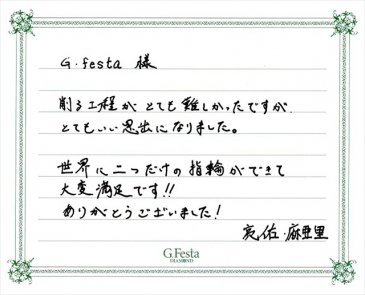 G.festa 様
削る工程がとても難しかったですが、
とてもいい思出になりました。
世界に二つだけの指輪ができて
大変満足です!!
ありがとうございました!
亮佑・麻亜里
G.Festa
DIAMOND